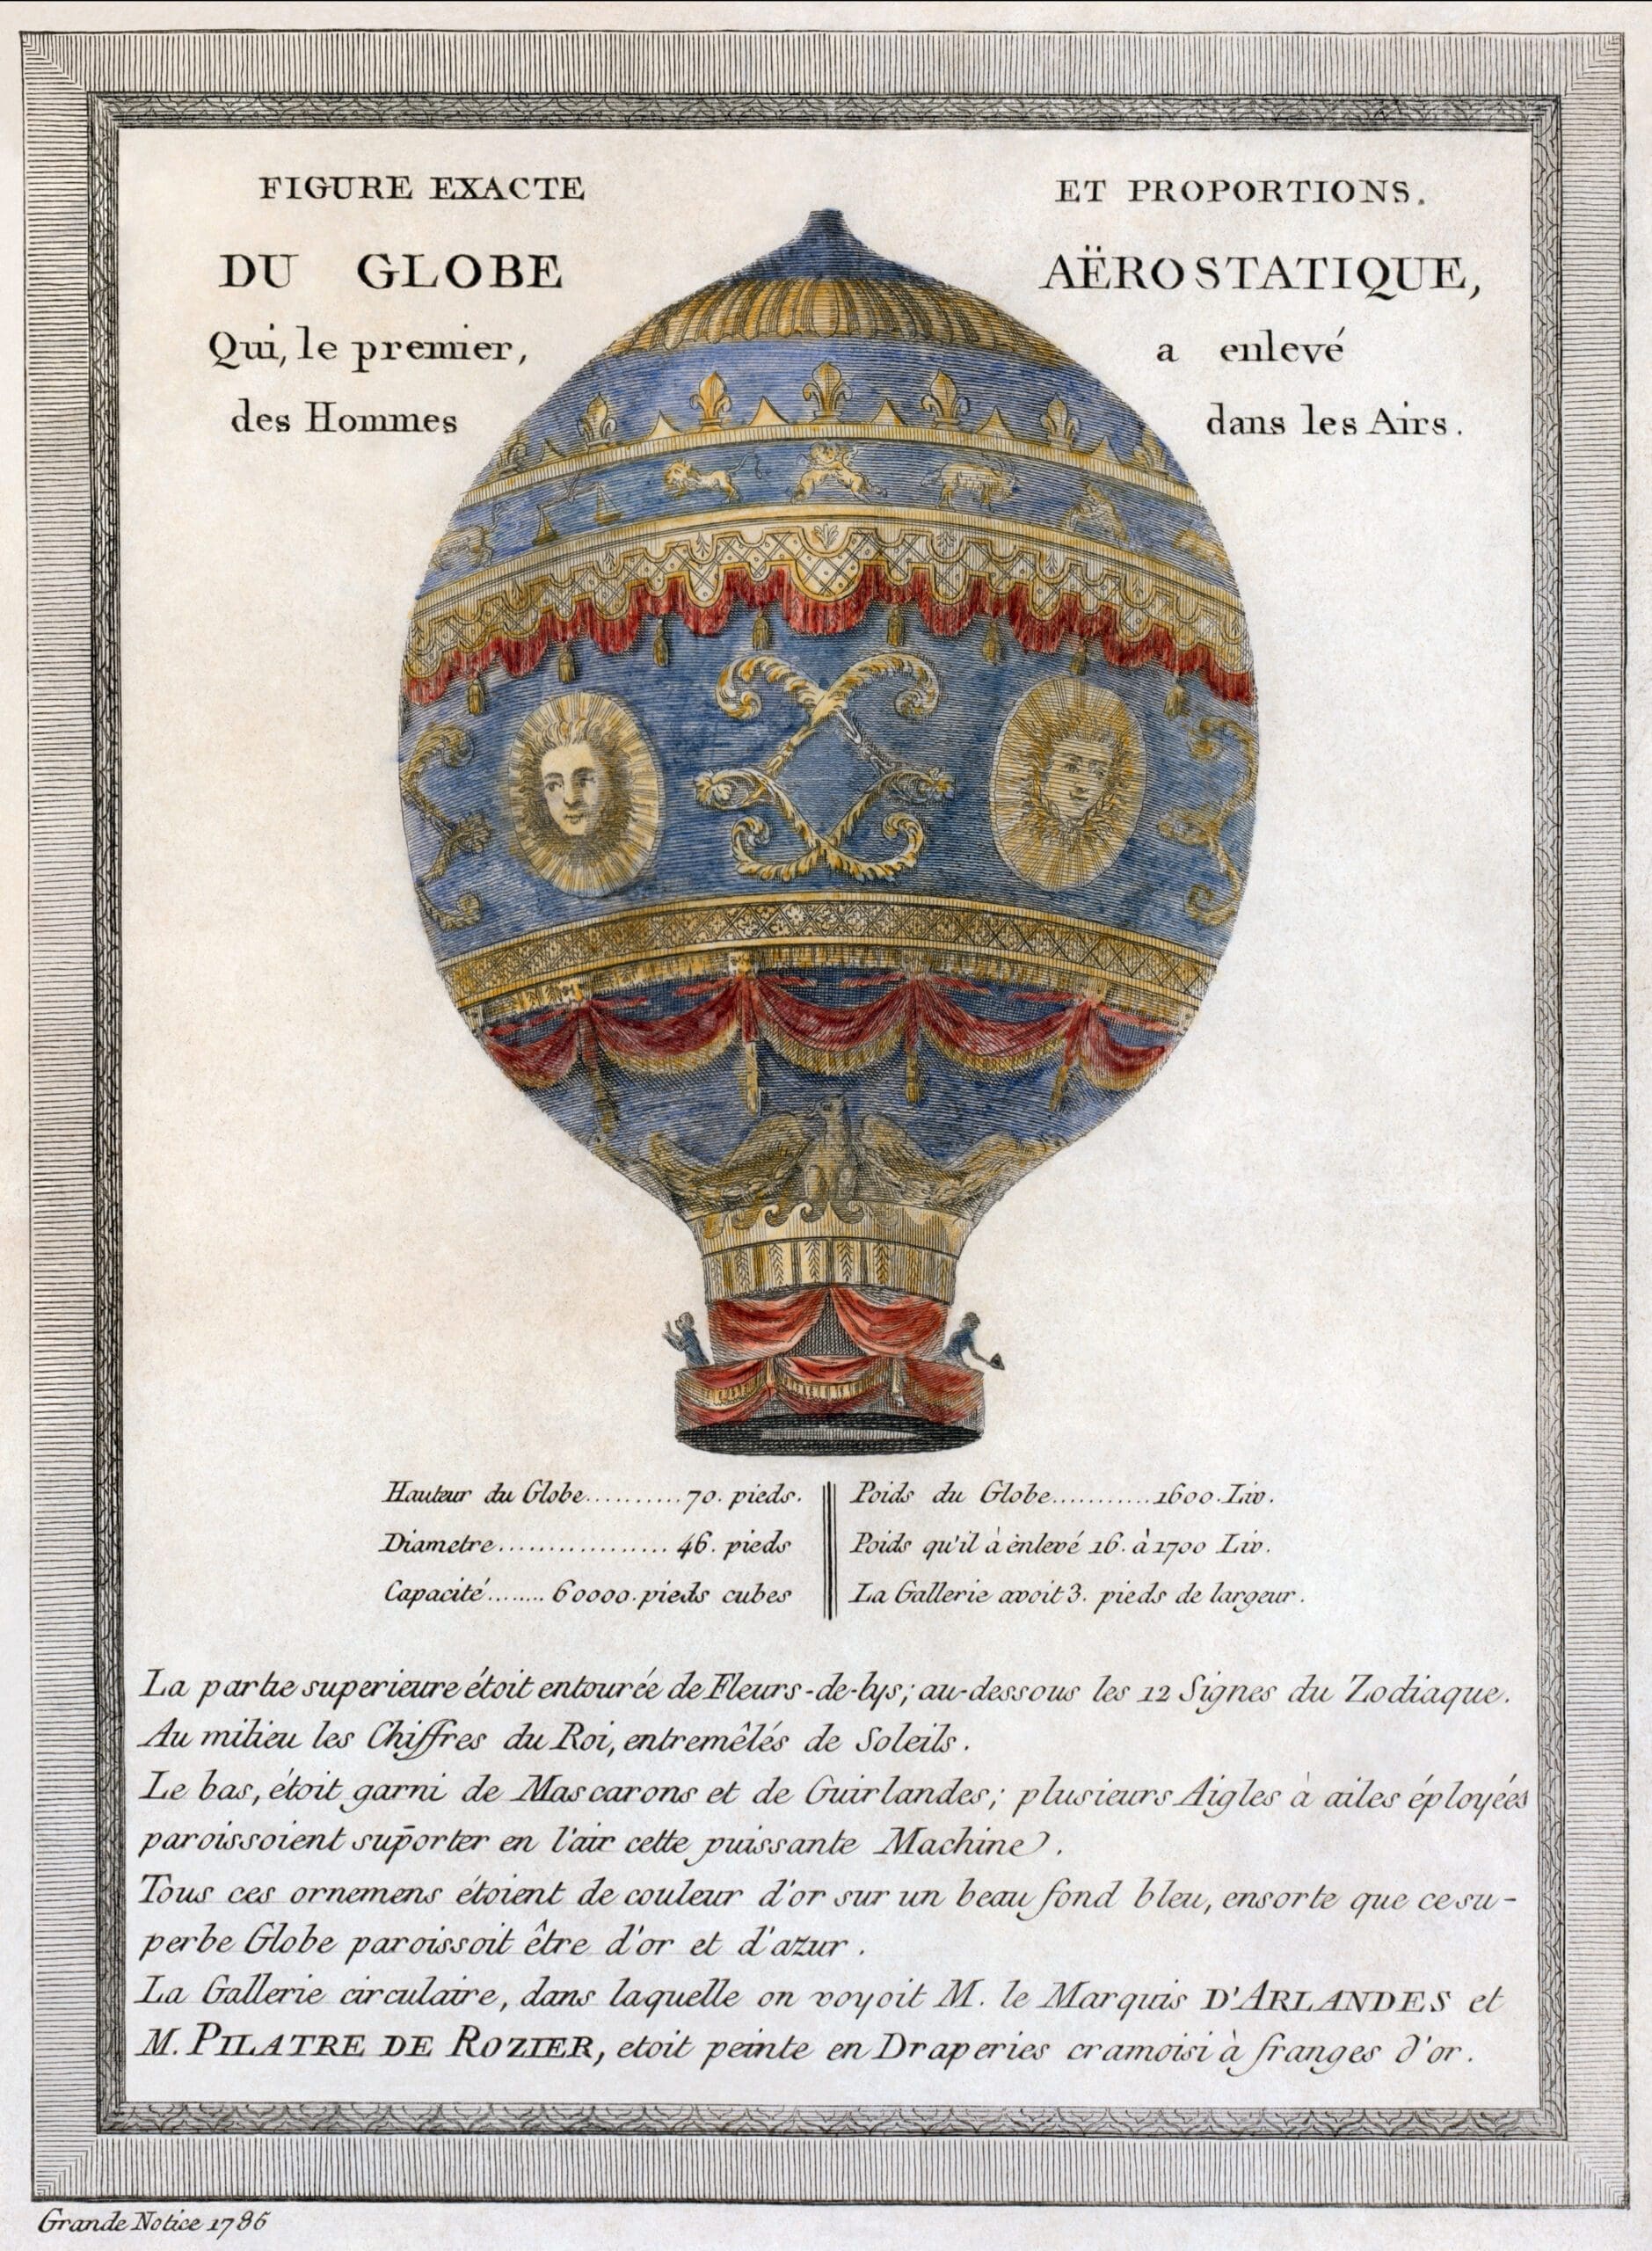 FIGURE EXACTE ET PROPORTIONS.
DU GLOBE AËROSTATIQUE,
Qui, le premier, a enlevé
des Hommes dans les Airs.
Hauteur du Globe..........70. pieds.
Diametre................. 46. pieds
Capacité........ 60000. pieds cubes
Poids du Globe...........1600. Liv.
Poids qu'il à ènlevé 16. à 1700 Liv.
La Gallerie avoit 3. pieds de largeur.
La partie superieure étoit entourée de Fleurs-de-lys; au-dessous les 12 Signes du Zodiaque.
Au milieu les Chiffres du Roi, entremêlés de Soleils.
Le bas, étoit garni de Mascarons et de Guirlandes; plusieurs Aigles à ailes éployées
paroissoient sup̄orter en l'air cette puissante Machine.
Tous ces ornemens étoient de couleur d'or sur un beau fond bleu, ensorte que ce su-
perbe Globe paroissoit être d'or et d'azur.
La Gallerie circulaire, dans laquelle on voyoit M. le Marquis D'ARLANDES et
M. PILATRE DE ROZIER, etoit peinte en Draperies cramoisi à franges d'or.
Grande Notice 1786